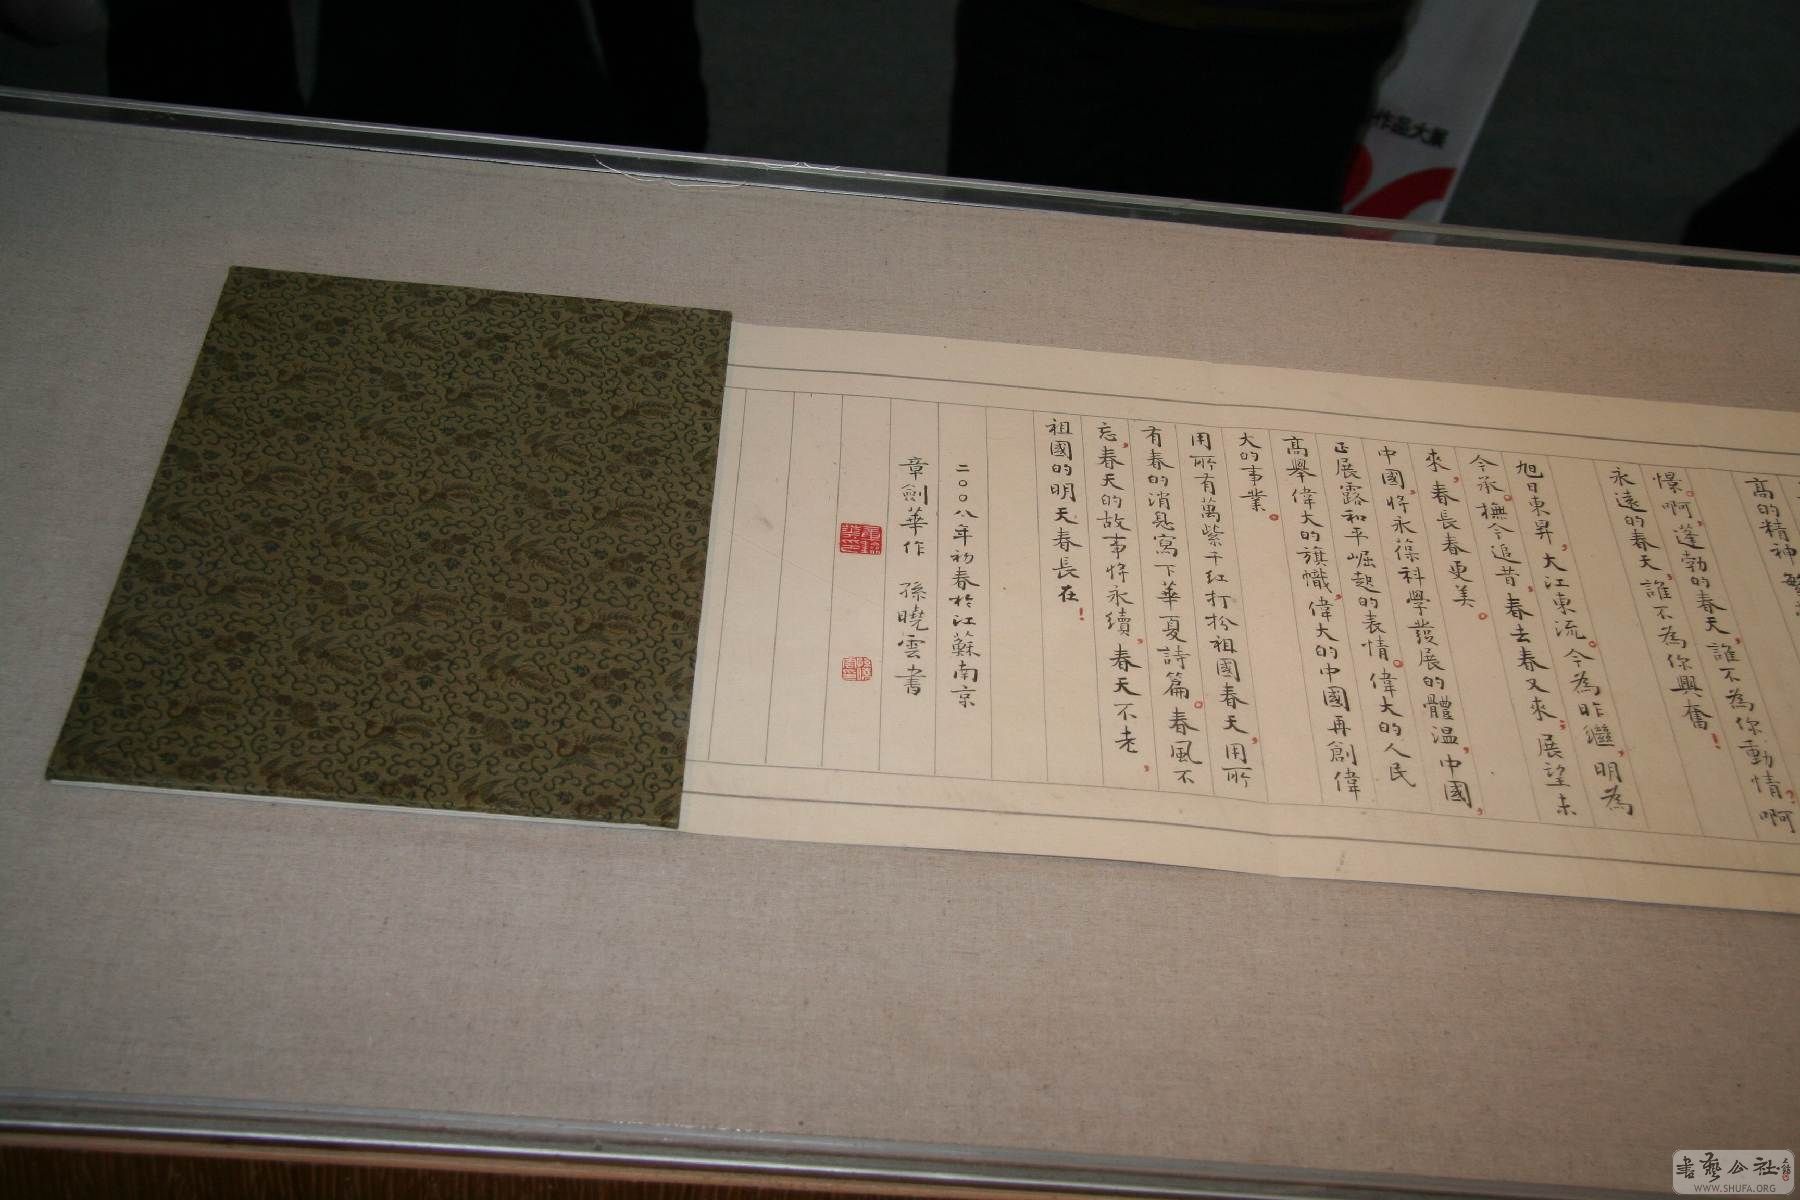 高的精神
啊
憬啊，蓬勃的春天，誰不為你動情？啊
永遠的春天，誰不為你興奮！
旭日東昇，大江東流。今為昨繼，明為
今承。撫今追昔，春去春又來；展望未
來，春長春更美。
中國，將永葆科學發展的體溫，中國，
正展露和平崛起的表情。偉大的人民
高舉偉大的旗幟，偉大的中國再創偉
大的事業。
用所有萬紫千紅打扮祖國春天，用所
有春的消息寫下華夏詩篇。春風不
忘，春天的故事將永續，春天不老，
祖國的明天春長在！
二〇〇八年初春於江蘇南京
章劍華作 孫曉雲書
作品大展
書藝公社
WWW.SHUFA.ORG